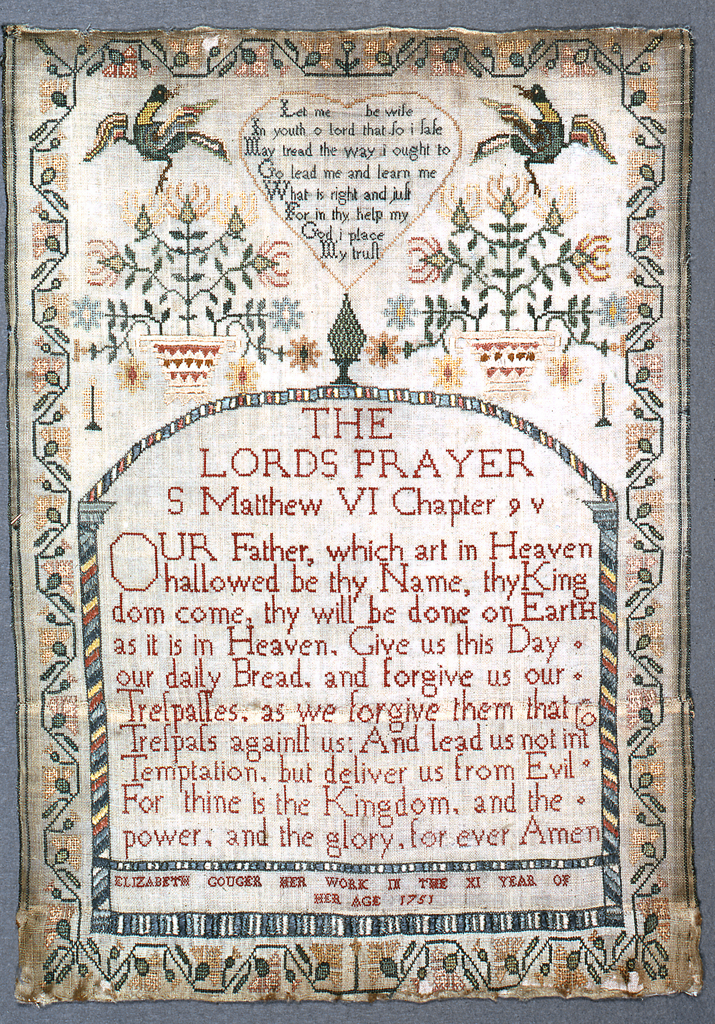 Let me be wiſe
In youth o lord that ſo i ſafe
May tread the way i ought to
Go lead me and learn me
What is right and juſt
For in thy help my
God i place
My truſt
THE
LORDS PRAYER
S Matthew VI Chapter 9 v
OUR Father, which art in Heaven
hallowed be thy Name, thy King
dom come, thy will be done on EartH
as it is in Heaven. Give us this Day
our daily Bread, and forgive us our
Treſpaſſes, as we forgive them that
Treſpaſs againſt us; And lead us not int
o
Temptation, but deliver us from Evil
For thine is the Kingdom, and the
power, and the glory, for ever Amen
ELIZABETH GOUGER HER WORK IN THE XI YEAR OF
HER AGE 1751